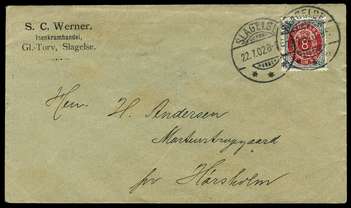 S. C. Werner,
Isenkramhandel,
Gl.-Torv, Slagelse.
SLAGELSE
22.7.02.8-
8
Herr. H. Andersen
pr Hørsholm